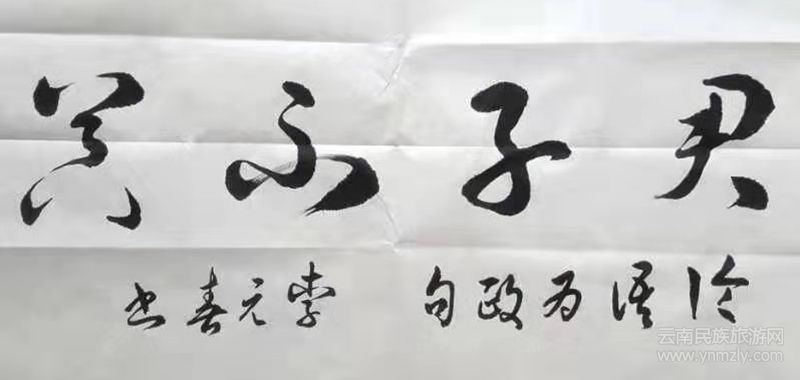 君子不器
论语为政句 李元春书
云南民族旅游网
www.ynmzly.com